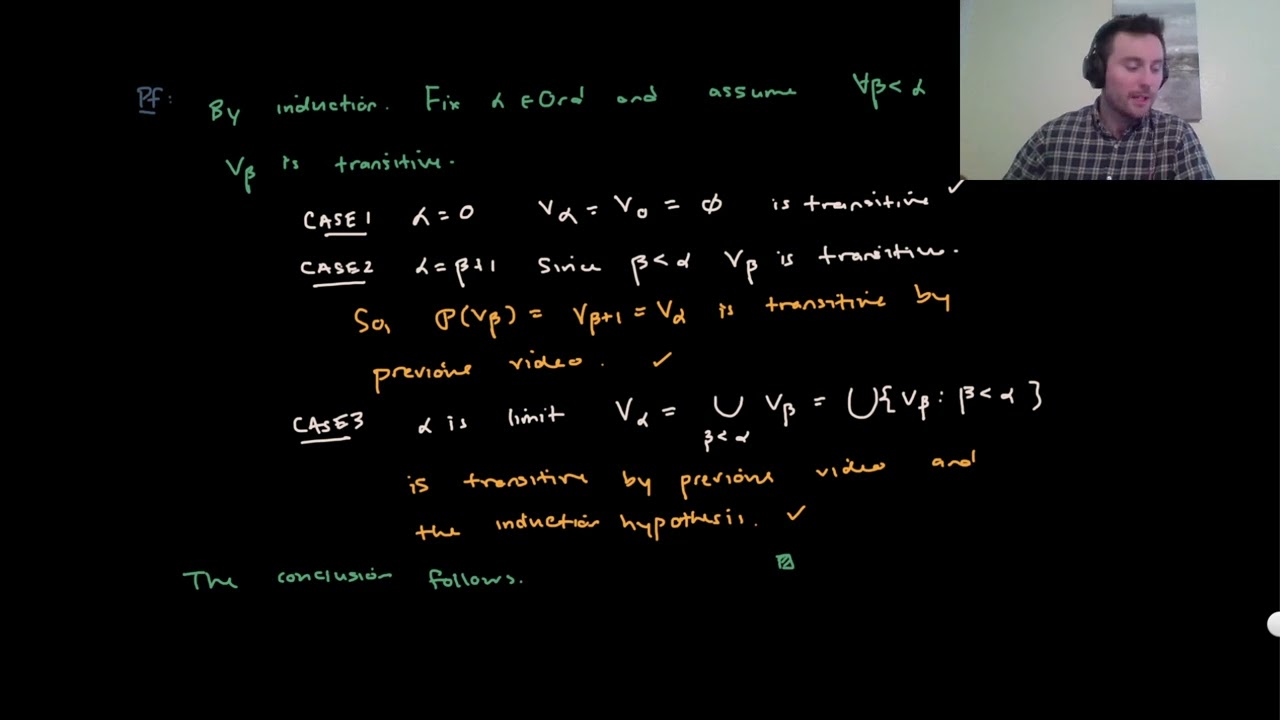 Pf: By induction. Fix α ∈ Ord and assume ∀β<α
Vβ is transitive.
CASE 1 α = 0 Vα = V₀ = ∅ is transitive ✓
CASE 2 α = β+1 Since β<α Vβ is transitive.
So, P(Vβ) = Vβ+1 = Vα is transitive by
previous video. ✓
CASE 3 α is limit Vα = ⋃β<α Vβ = ⋃{Vβ : β<α}
is transitive by previous video and
the induction hypothesis. ✓
The conclusion follows.